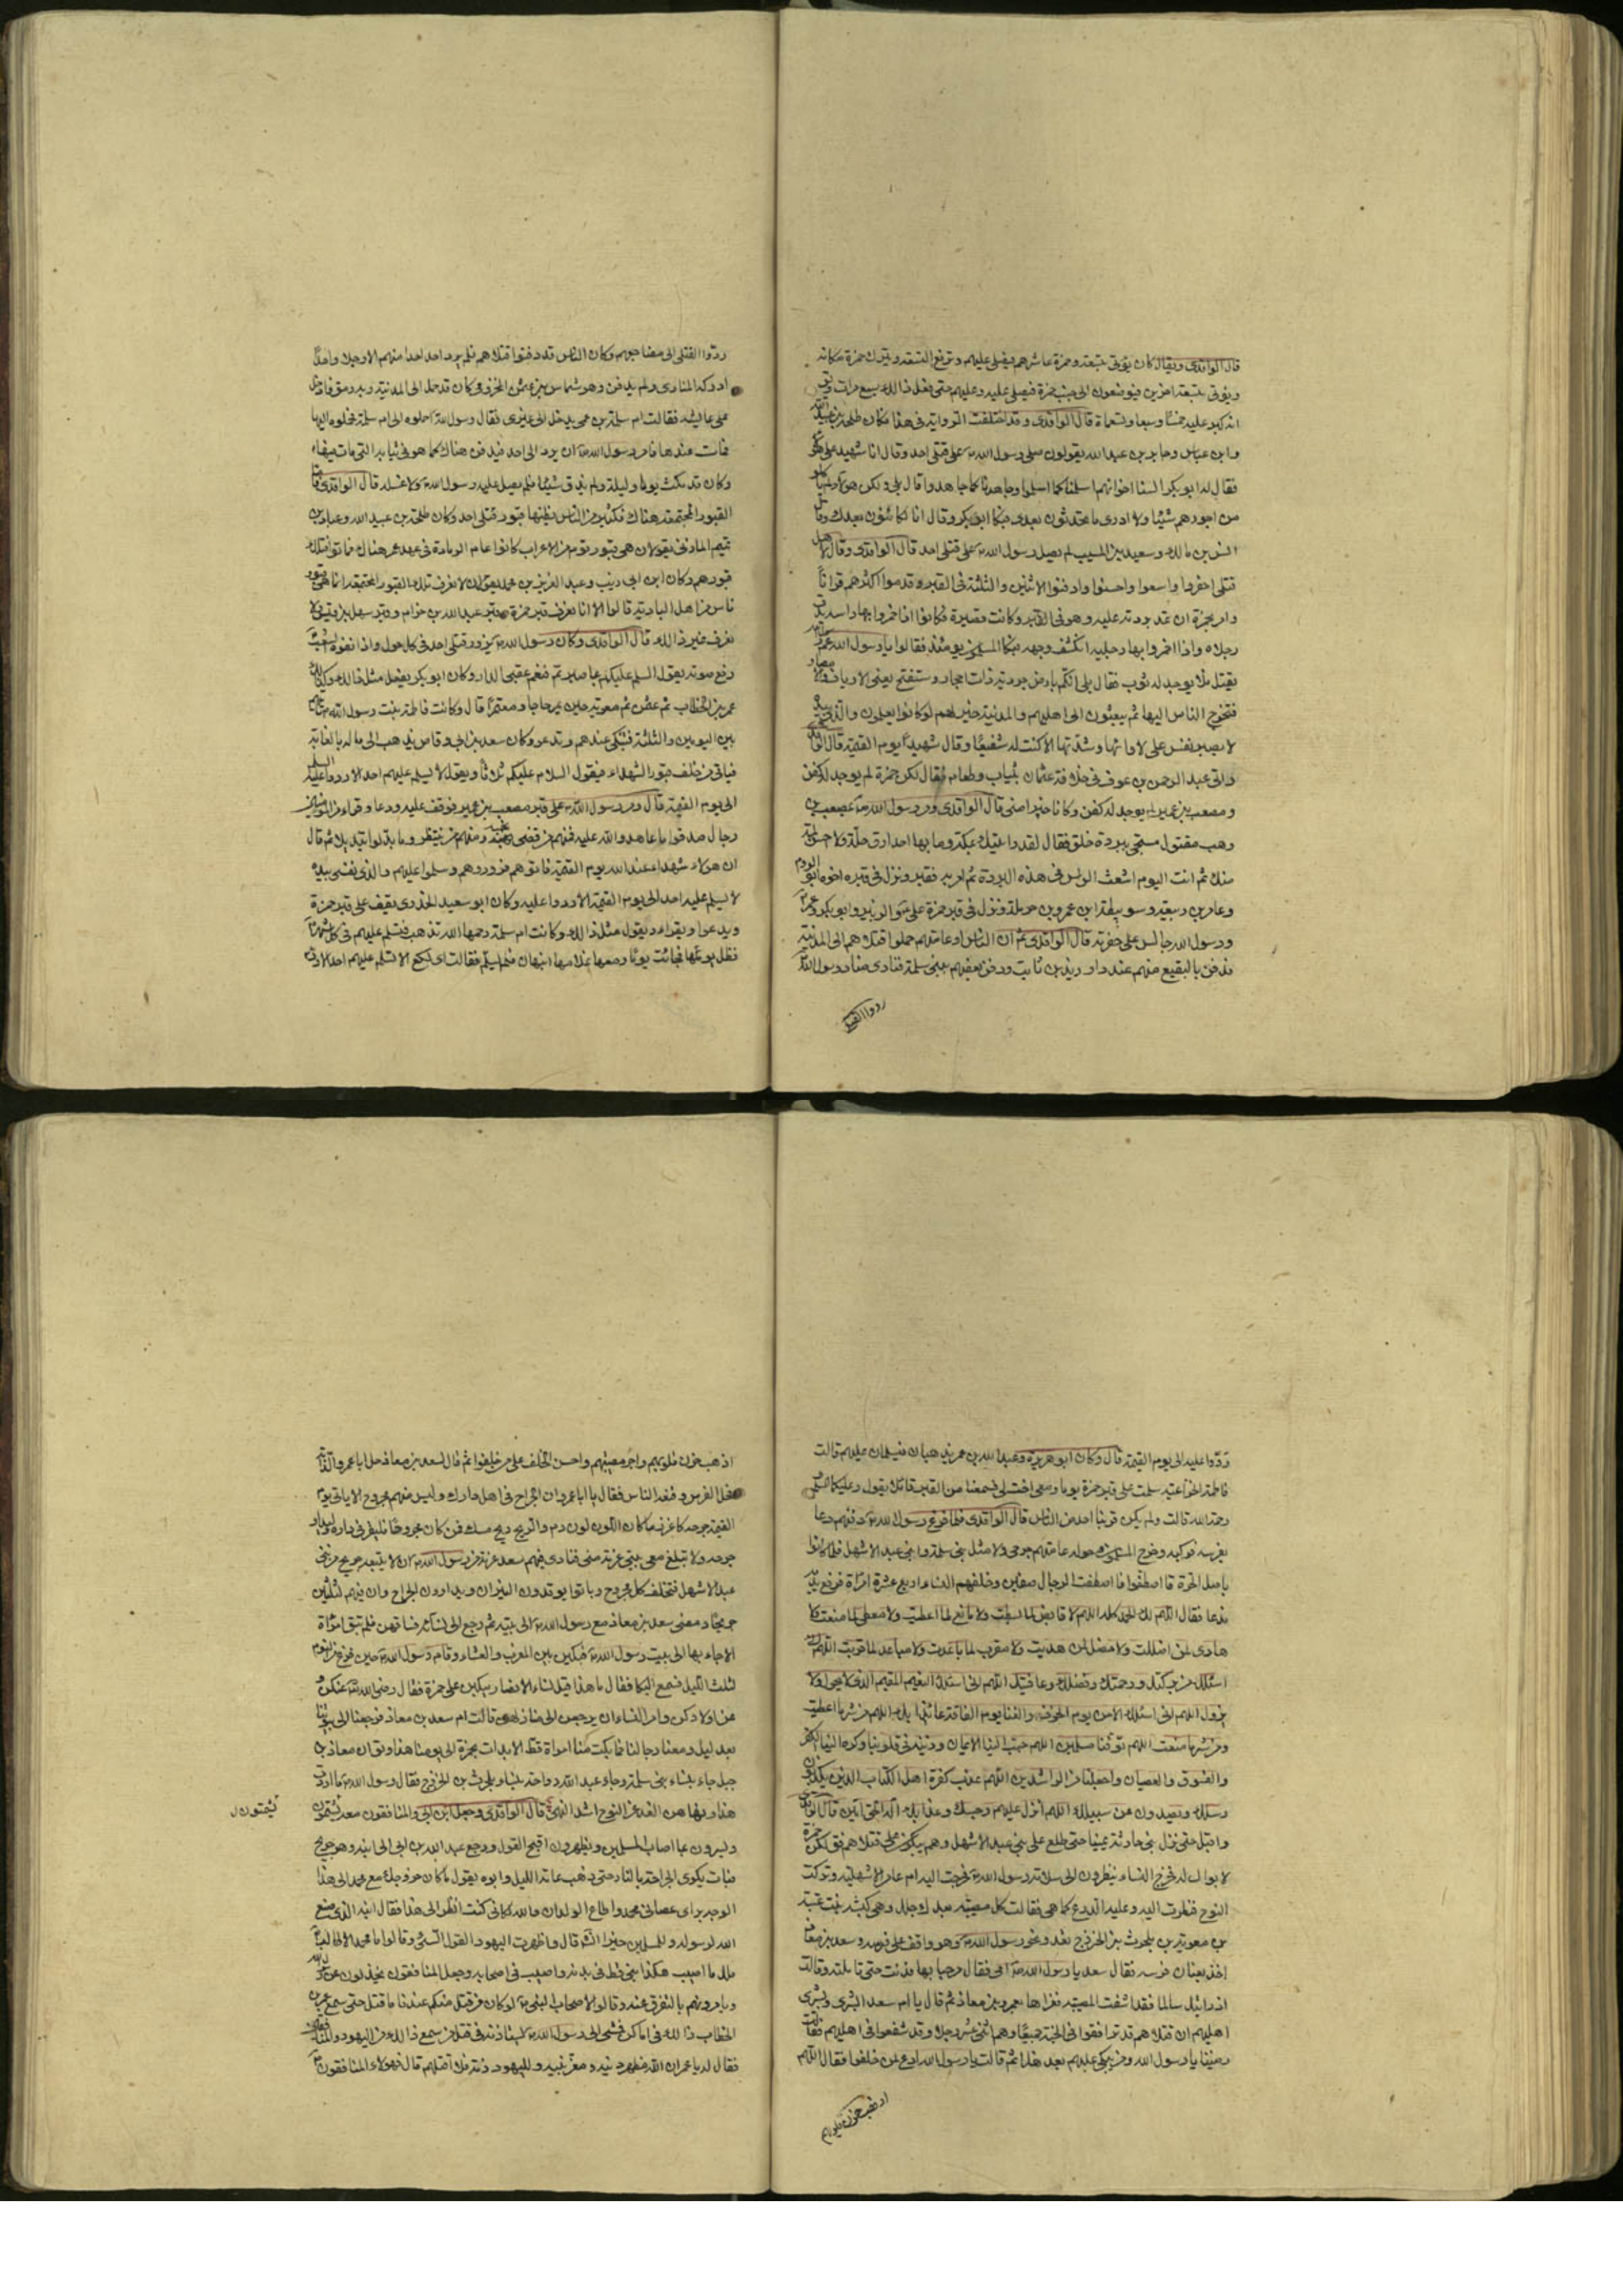 قال الواقدى ويقال كان يؤتى بتسعة وحمزة عاشرهم فيصلى عليهم وترفع التسعة ويترك حمزة مكانه
ويؤتى بتسعة اخرين فيوضعون الى جنب حمزة فيصلى عليه وعليهم حتى فعل ذالك سبع مرات ويق
انه كبر عليه خمسًا وسبعا وتسعا قال الواقدى وقد اختلفت الرواية فى هذا فكان طلحة بن عبيد الله
وابن عباس وجابر بن عبد الله يقولون صلى رسول الله على قتلى احد وقال انا شهيد على هؤ
فقال له ابو بكر السنا اخوانهم اسلمنا كما اسلموا وجاهدنا كما جاهدوا قال بلى ولكن هؤلاء لم يا كلوا
من اجورهم شيئا ولا ادرى ما تحدثون بعدى فبكا ابو بكر وقال انا لكائنون بعدك وقال
انس بن مالك وسعيد بن المسيب لم يصل رسول الله على قتلى احد قال الواقدى وقال لاهل
قتلى احفروا واسعوا واحسنوا وادفنوا الاثنين والثلثة فى القبر وقدموا اكثرهم قرانًا
وامر بحمزة ان تمد بردته عليه وهو فى القبر وكانت قصيرة فكانوا اذا خمروا بها راسه بدت
رجلاه واذا خمروا بها رجليه انكشف وجهه فبكا المسلمون يومئذ فقالوا يا رسول الله عم
يقتل فلا يوجد له ثوب فقال بلى انكم بارض جردية ذات احجار وستفتح يعنى الارياف والا مصار
فتخرج الناس اليها ثم يبعثون الى اهليهم والمدينة خير لهم لوكانوا يعلمون والذى نفسى بيده
لا يصبر نفس على لاوائها وشدتها الا كنت له شفيعًا وقال شهيدًا يوم القيمة قال الواقدى
واتى عبد الرحمن بن عوف فى خلافة عثمان بثياب وطعام فقال لكن حمزة لم يوجد له كفن
ومصعب بن عمير لم يوجد له كفن وكانا خيرا منى قال الواقدى ومر رسول الله بمصعب بن
وهب مقتول مسجى ببردة خلق فقال لقد رايتك بمكة وما بها احد ارق حلة ولا احسن لمة
منك ثم انت اليوم اشعث الراس فى هذه البردة ثم امر به فقبر ونزل فى قبره اخوه ابو الروم
وعامر بن ربيعة وسويبط بن عمرو بن حرملة ونزل فى قبر حمزة على والزبير وابو بكر وعمر
ورسول الله جالس على حفرته قال الواقدى ثم ان الناس او عامتهم حملوا قتلاهم الى المدينة
فدفن بالبقيع منهم عند دار زيد بن ثابت ودفن بعضهم ببنى سلمة فنادى منادى رسول الله
ردوا القتلى
ردّوا القتلى الى مضاجعهم وكان الناس قد دفنوا قتلاهم فلم يرد احد احدا منهم الا رجلا واحدًا
ادركه المنادى ولم يدفن وهو شماس بن عثمان المخزومى كان قد حمل الى المدينة وبه رمق فادخل
على عايشه فقالت ام سلمة ابن عمى يدخل الى غيرى فقال رسول الله احملوه الى ام سلمة فحملوه اليها
فمات عندها فامر رسول الله ان يرد الى احد فيدفن هناك كما هو فى ثيابه التى مات فيها
وكان قد مكث يوما وليلة ولم يذق شيئا فلم يصل عليه رسول الله ولا غسله قال الواقدى فاما
القبور المجتمعة هناك فكثير من الناس يظنها قبور قتلى احد وكان طلحة بن عبيد الله وعباد بن
تميم المازنى يقولان هى قبور قوم من الاعراب كانوا عام الرمادة فى عهد عمر هناك فماتوا فتلك
قبورهم وكان ابن ابى ذيب وعبد العزيز بن محمد يقولان لا نعرف تلك القبور المجتمعة انما هى قبور
ناس من اهل البادية قالوا الا انا نعرف قبر حمزة وقبر عبد الله بن حزام وقبر سهل بن قيس ولا
نعرف غير ذالك قال الواقدى وكان رسول الله يزور قتلى احد فى كل حول واذا لقوه بالشعب
رفع صوته يقول السلام عليكم بما صبرتم فنعم عقبى الدار وكان ابو بكر يفعل مثل ذالك وكذلك
عمر بن الخطاب ثم عثمن ثم معوية حين يمر حاجا ومعتمرًا قال وكانت فاطمة بنت رسول الله تاتيهم
بين اليومين والثلثة فتبكى عندهم وتدعو وكان سعد بن ابى وقاص يذهب الى ماله بالغابة
فياتى من خلف قبور الشهداء فيقول السلام عليكم ثلاثًا ويقول لا يسلم عليهم احد الا ردوا عليه السلم
الى يوم القيمة قال ومر رسول الله على قبر مصعب بن عمير فوقف عليه ودعا وقراء من المؤمنين
رجال صدقوا ما عاهدوا الله عليه فمنهم من قضى نحبه ومنهم من ينتظر وما بدلوا تبديلا ثم قال
ان هولاء شهداء عند الله يوم القيمة فاتوهم فزوروهم وسلموا عليهم والذى نفسى بيده
لا يسلم عليهم احد الى يوم القيمة الا ردوا عليه وكان ابو سعيد الخدرى يقيف على قبر حمزة
ويدعوا ويقراء ويقول مثل ذالك وكانت ام سلمة رحمها الله تذهب فتسلم عليهم فى كل شهر
فتظل يومها فجائت يومًا ومعها غلامها انبهان فلم يسلم فقالت اى لكع الا تسلم عليهم احد الا رد
ردّوا عليه الى يوم القيمة قال وكان ابو هريرة وعبد الله بن عمر يذهبان فيسلمان عليهم قالت
فاطمة الخزاعية سلمت على قبر حمزة يوما ومعى اخت لى فسمعنا من القبر قائلا يقول وعليكما السلم
رحمة الله قالت ولم يكن قربنا احد من الناس قال الواقدى فلما فرغ رسول الله من دفنهم دعا
بفرسه فركبه وخرج المسلمون حوله عامتهم جرحى ولا مثل بنى سلمة وبنى عبد الاشهل فلما كانوا
باصل الحرة قال اصطفوا فاصطفت الرجال صفين وخلفهم النساء اربع عشرة امراة فرفع يديه
فدعا فقال اللهم لك الحمد كله اللهم لا قابض لما بسطت ولا مانع لما اعطيت ولا معطى لما منعت ولا
هادى لمن اضللت ولا مضل لمن هديت ولا مقرب لما باعدت ولا مباعد لما قربت اللهم انى
اسئلك من بركتك ورحمتك وفضلك وعافيتك اللهم انى اسئلك النعيم المقيم الذى لا يحول ولا
يزول اللهم انى اسئلك الامن يوم الخوف والغنا يوم الفاقة عائذًا بك اللهم من شر ما اعطيت
ومن شر ما منعت اللهم توفنا مسلمين اللهم حبب الينا الايمان وزينه فى قلوبنا وكره الينا الكفر
والفسوق والعصيان واجعلنا من الراشدين اللهم عذب كفرة اهل الكتاب الذين يكذبون
رسلك ويصدون عن سبيلك اللهم انزل عليهم رجسك وعذابك اله الحق امين قال الواقدى
واقبل حتى نزل بنى حارثة يمينا حتى طلع على بنى عبد الاشهل وهم يبكون على قتلاهم فق لكن حمزة
لا بواك له فخرج النساء ينظرون الى سلامة رسول الله فخرجت اليه ام عامر الاشهلية وتركت
النوح فنظرت اليه وعليه الدرع كما هى فقالت كل مصيبة بعدك جلل وهى كبشة بنت عتبة
بن معوية بن بلحرث بن الخزرج تعدو نحو رسول الله وهو واقف على فرسه وسعد بن معاذ
اخذ بعنان فرسه فقال سعد يا رسول الله امى فقال مرحبا بها فدنت حتى تاملته وقالت
اذ رايتك سالما فقد اشفت المصيبة فعزاها بعمرو بن معاذ ثم قال يا ام سعد ابشرى وبشرى
اهليهم ان قتلاهم قد ترافقوا فى الجنة جميعًا وهم اثنى عشر رجلا وقد شفعوا فى اهليهم فقالت
رضينا يا رسول الله ومن يبكى عليهم بعد هذا ثم قالت يا رسول الله ادع لمن خلفوا فقال اللهم
اذهب حزن قلوبهم
اذهب حزن قلوبهم واجر مصيبتهم واحسن الخلف على من خلفوا ثم قال لسعد بن معاذ حل ابا عمرو الدابة
فحل الفرس وتبعه الناس فقال يا ابا عمرو ان الجراح فى اهل دارك وليس منهم مجروح الا ياتى يوم
القيمة جرحه كاغزر ما كان اللون لون دم والريح ريح مسك فمن كان مجروحًا فليقر فى داره وليداو
جرحه ولا تبلغ معى بيتى عزيمة منى فنادى فيهم سعد عزيمة من رسول الله ان لا يتبعه جريح من بنى
عبد الاشهل فتخلف كل مجروح وباتوا يوقدون النيران ويداوون الجراح وان فيهم لثلثين
جريحًا ومضى سعد بن معاذ مع رسول الله الى بيته ثم رجع الى نسائه فساقهن فلم تبق امراة
الا جاء بها الى بيت رسول الله فبكين بين المغرب والعشاء وقام رسول الله حين فرغ من النوم
لثلث الليل فسمع البكا فقال ما هذا قيل نساء الانصار يبكين على حمزة فقال رضى الله عنكن و
عن اولادكن وامر النساء ان يرجعن الى منازلهن قالت ام سعد بن معاذ فرجعنا الى بيوتنا
بعد ليل ومعنا رجالنا فما بكت منا امراة قط الا بدات بحمزة الى يومنا هذا ويق ان معاذ بن
جبل جاء بنساء بنى سلمة وجاء عبد الله بن رواحة بنساء بلحرث بن الخزرج فقال رسول الله ما اردت
هذا ونهاهن الغد عن النوح اشد النهى قال الواقدى وجعل ابن ابى والمنافقون معه يشمتون
يشمتون ل
ويسرون بما اصاب المسلمين ويظهرون اقبح القول ورجع عبد الله بن ابى الى ابنه وهو جريح
فبات يكوى الجراحة بالنار حتى ذهب عامة الليل وابوه يقول ما كان خروجك مع محمد الى هذا
الوجه براى عصانى محمد واطاع الولدان والله لكانى كنت انظر الى هذا فقال ابنه الذى صنع
الله لرسوله وللمسلمين خير انشاء الله قال واظهرت اليهود القول السئ وقالوا ما محمد الا طالب
ملك ما اصيب هكذا نبى قط فى بدنه واصيب فى اصحابه وجعل المنافقون يخذلون عن رسول الله
ويامرونهم بالتفرق عنه وقالوا لاصحاب النبى لو كان من قتل منكم عندنا ما قتل حتى سمع عمر بن
الخطاب ذالك فى اماكن فمشى الى رسول الله ليستاذنه فى قتل من سمع ذالك من اليهود والمنافقين
فقال له يا عمر ان الله مظهر دينه ومعز نبيه ولليهود ذمة فلا اقتلهم قال فهولاء المنافقون